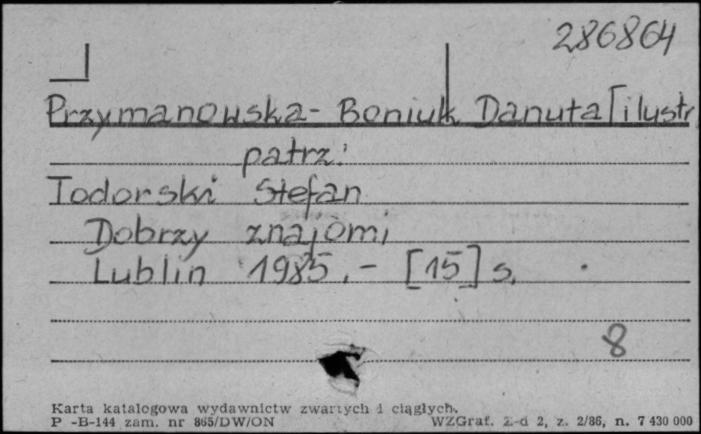 286864
Przymanowska-Boniuk Danuta [ilustr
patrz:
Todorski Stefan
Dobrzy znajomi
Lublin 1985.- [15] s.
8
Karta katalogowa wydawnictw zwartych i ciągłych.
P -B-144 zam. nr 865/DW/ON WZGraf. Z-d 2, z. 2/86, n. 7 430 000